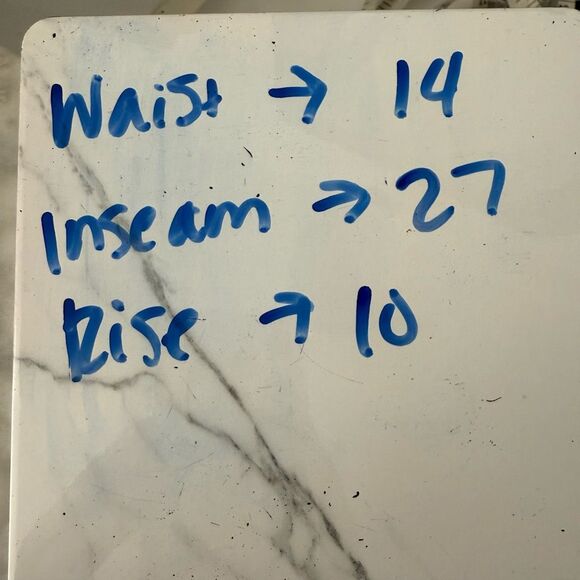 Waist → 14
Inseam → 27
Rise → 10